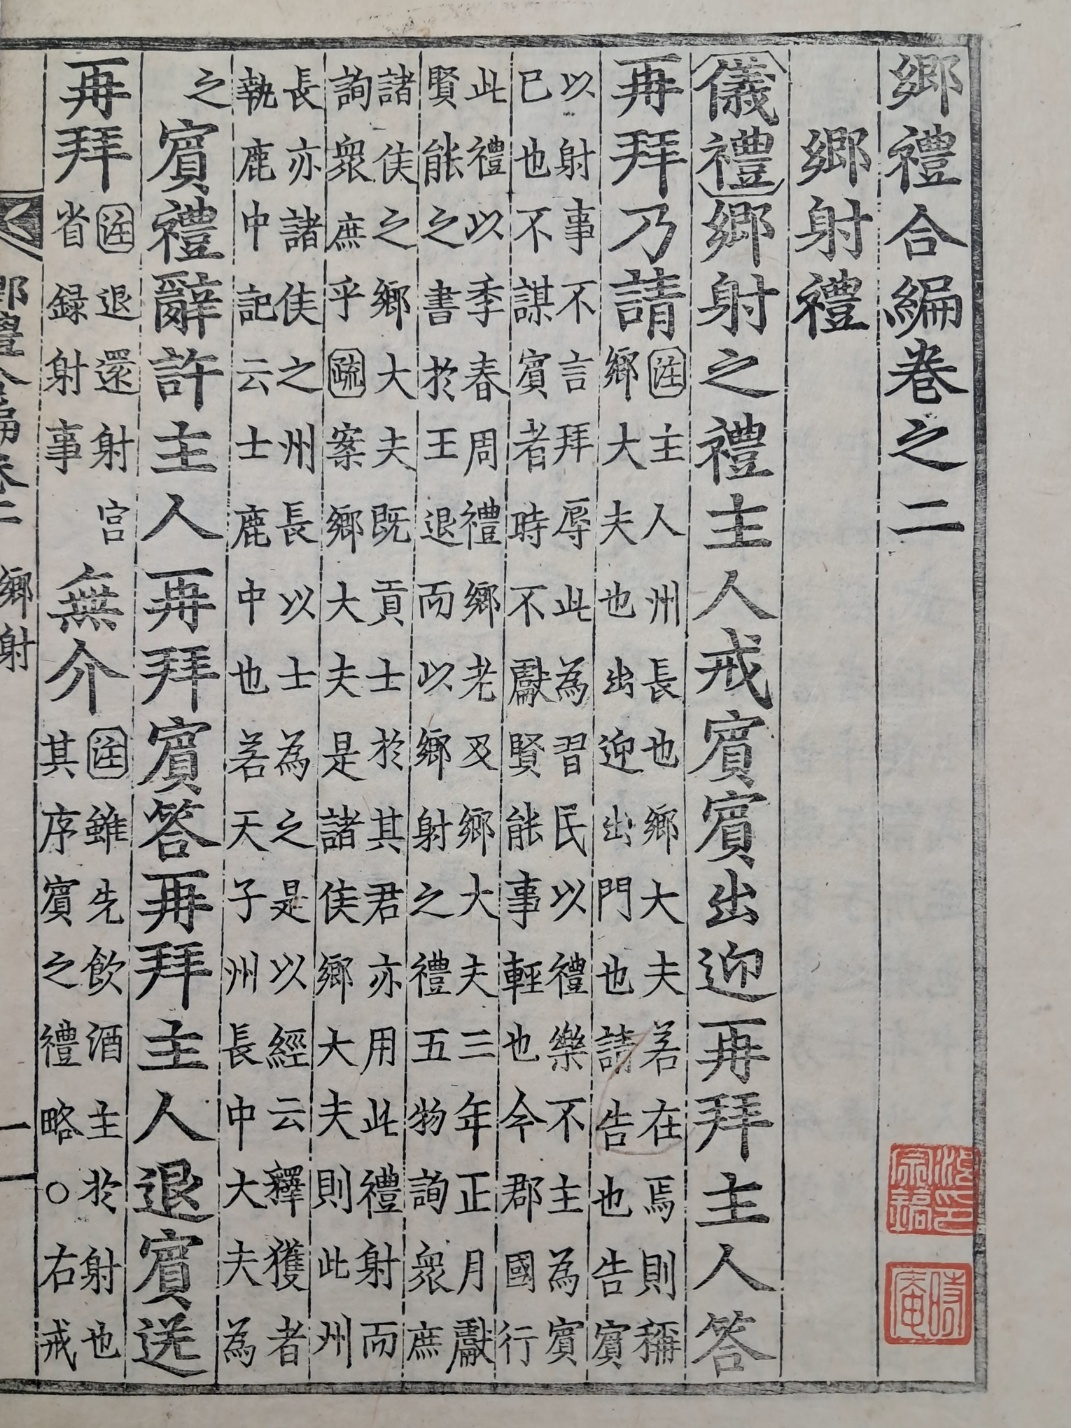 鄉禮合編卷之二
鄉射禮
儀禮鄉射之禮主人戒賓賓出迎再拜主人答
再拜乃請
注主人州長也鄉大夫若在焉則稱
鄉大夫也出迎出門也請告也告賓
以射事不言拜辱此為習民以禮樂不主為賓
已也不謀賓者時不獻賢能事輕也今郡國行
此禮以季春周禮鄉老及鄉大夫三年正月獻
賢能之書於王退而以鄉射之禮五物詢衆庶
諸侯之鄉大夫既貢士於其君亦用此禮射而
詢衆庶乎疏案鄉大夫是諸侯鄉大夫則此州
長亦諸侯之州長以士為之是以經云釋獲者
執鹿中記云士鹿中也若天子州長中大夫為
之
賓禮辭許主人再拜賓答再拜主人退賓送
再拜
注退還射宮
省録射事
無介
注雖先飲酒主於射也
其序賓之禮略○右戒
鄉禮合編卷二 鄉射 一
時庵